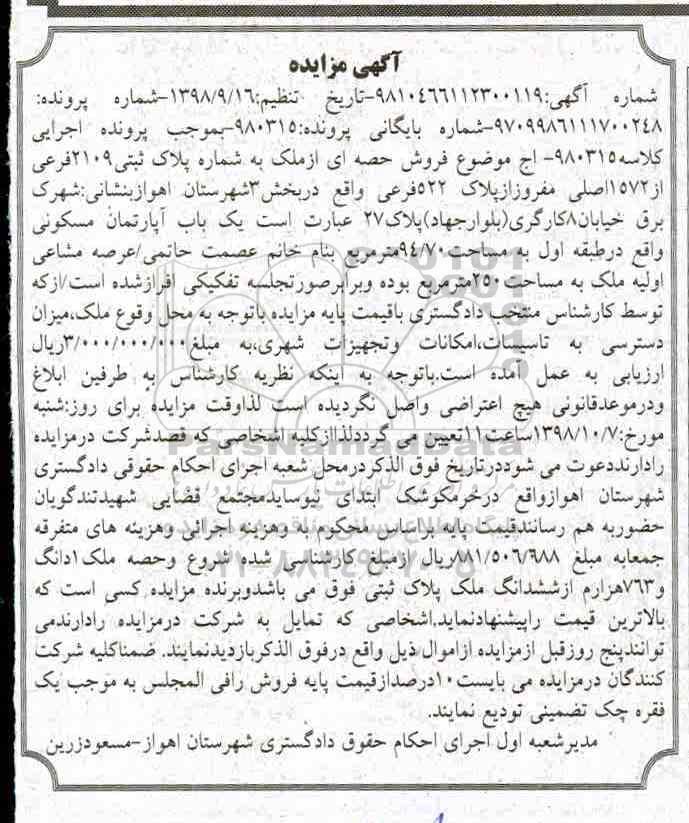 آگهی مزایده
شماره آگهی:۹۸۱۰۴۶۶۱۱۲۳۰۰۱۱۹-تاریخ تنظیم:۱۳۹۸/۹/۱۶-شماره پرونده:
۹۷۰۹۹۸۶۱۱۱۷۰۰۲۴۸-شماره بایگانی پرونده:۹۸۰۳۱۵-بموجب پرونده اجرایی
کلاسه۹۸۰۳۱۵- اج موضوع فروش حصه ای ازملک به شماره پلاک ثبتی۲۱۰۹فرعی
از۱۵۷۲اصلی مفروزازپلاک ۵۲۲فرعی واقع دربخش۳شهرستان اهوازبنشانی:شهرک
برق خیابان۸کارگری(بلوارجهاد)پلاک۲۷ عبارت است یک باب آپارتمان مسکونی
واقع درطبقه اول به مساحت۹۴/۷۰مترمربع بنام خانم عصمت حاتمی/عرصه مشاعی
اولیه ملک به مساحت۲۵۰مترمربع بوده وبرابرصورتجلسه تفکیکی افرازشده است/ازکه
توسط کارشناس منتخب دادگستری باقیمت پایه مزایده باتوجه به محل وقوع ملک،میزان
دسترسی به تاسیسات،امکانات وتجهیزات شهری،به مبلغ۳/۰۰۰/۰۰۰/۰۰۰ریال
ارزیابی به عمل آمده است.باتوجه به اینکه نظریه کارشناس به طرفین ابلاغ
ودرموعدقانونی هیچ اعتراضی واصل نگردیده است لذاوقت مزایده برای روز:شنبه
مورخ:۱۳۹۸/۱۰/۷ساعت۱۱تعیین می گرددلذاازکلیه اشخاصی که قصدشرکت درمزایده
رادارنددعوت می شوددرتاریخ فوق الذکردرمحل شعبه اجرای احکام حقوقی دادگستری
شهرستان اهوازواقع درخرمکوشک ابتدای نیوسایدمجتمع قضایی شهیدتندگویان
حضوربه هم رسانندقیمت پایه براساس محکوم به وهزینه اجرائی وهزینه های متفرقه
جمعابه مبلغ ۸۸۱/۵۰۶/۶۸۸ریال ازمبلغ کارشناسی شده شروع وحصه ملک۱دانگ
و۷۶۳هزارم ازششدانگ ملک پلاک ثبتی فوق می باشدوبرنده مزایده کسی است که
بالاترین قیمت راپیشنهادنماید.اشخاصی که تمایل به شرکت درمزایده رادارندمی
توانندپنج روزقبل ازمزایده ازاموال ذیل واقع درفوق الذکربازدیدنمایند. ضمناکلیه شرکت
کنندگان درمزایده می بایست۱۰درصدازقیمت پایه فروش رافی المجلس به موجب یک
فقره چک تضمینی تودیع نمایند.
مدیرشعبه اول اجرای احکام حقوق دادگستری شهرستان اهواز-مسعودزرین
ParsNamadData